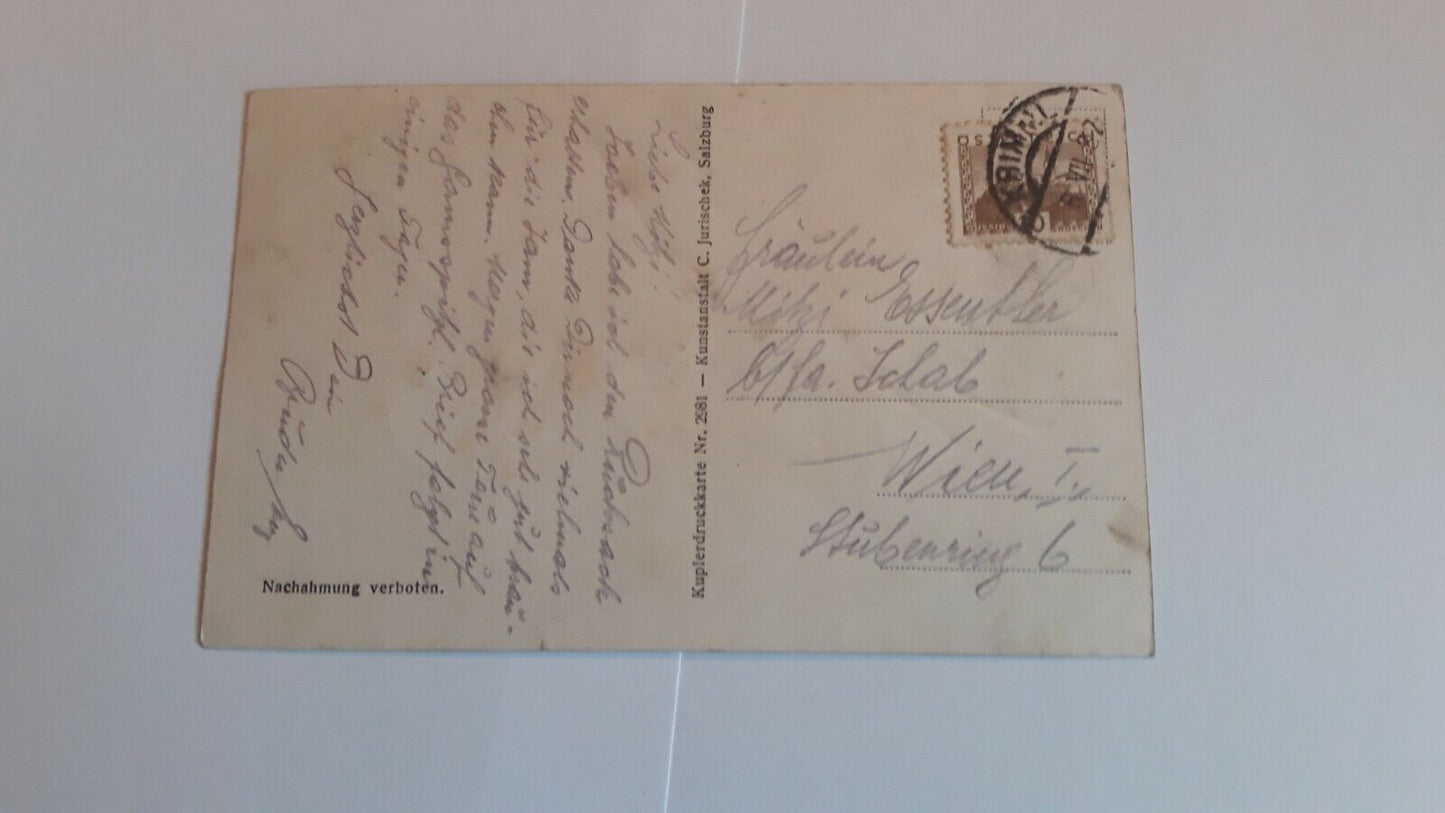 Liebe Mitzi!
Soeben habe ich den Rucksack
erhalten. Danke Dir noch vielmals
für die Jam, die ich sehr gut brau-
chen kann. auf
das Brief folgt in
einigen Tagen.
Herzlichst Dein
Nachahmung verboten.
Kupferdruckkarte Nr. 2981 — Kunstanstalt C. Jurischek, Salzburg
KRIMML
Fräulein
Mitzi Essenther
Schab
Wien, I.,
Stubenring 6